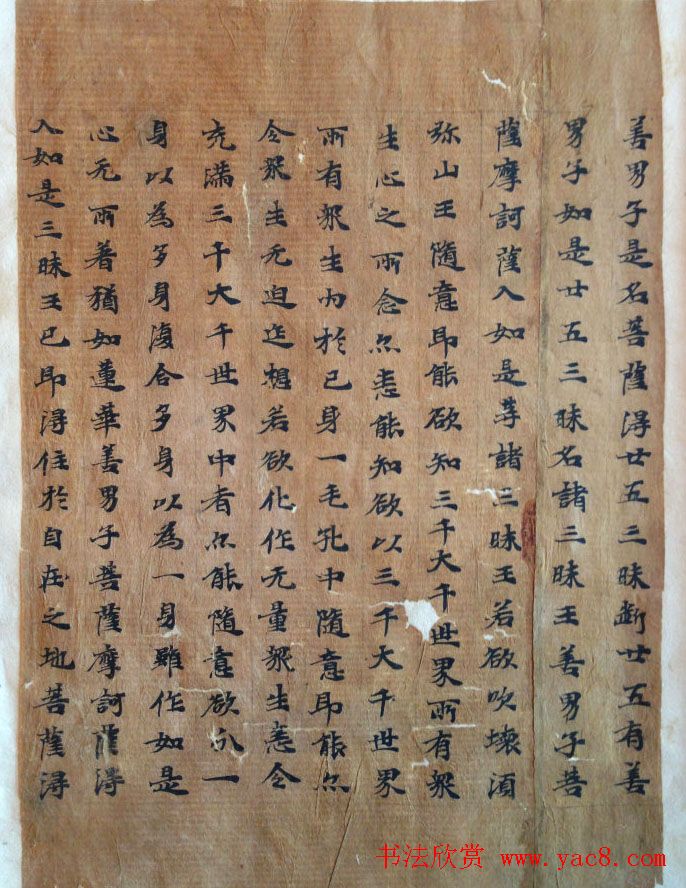 善男子是名菩薩淂廿五三昧断廿五有善
男子如是廿五三昧名諸三昧王善男子菩
薩摩訶薩入如是等諸三昧王若欲吹壞湏
弥山王隨意即能欲知三千大千世界所有衆
生心之所念亦悉能知欲以三千大千世界
所有衆生内於已身一毛孔中隨意即能亦
令衆生无迫迮想若欲化作无量衆生悉令
充滿三千大千世界中者亦能隨意欲分一
身以為多身復合多身以為一身雖作如是
心无所著猶如蓮華善男子菩薩摩訶薩淂
入如是三昧王已即淂住於自在之地菩薩淂
书法欣赏 www.yac8.com